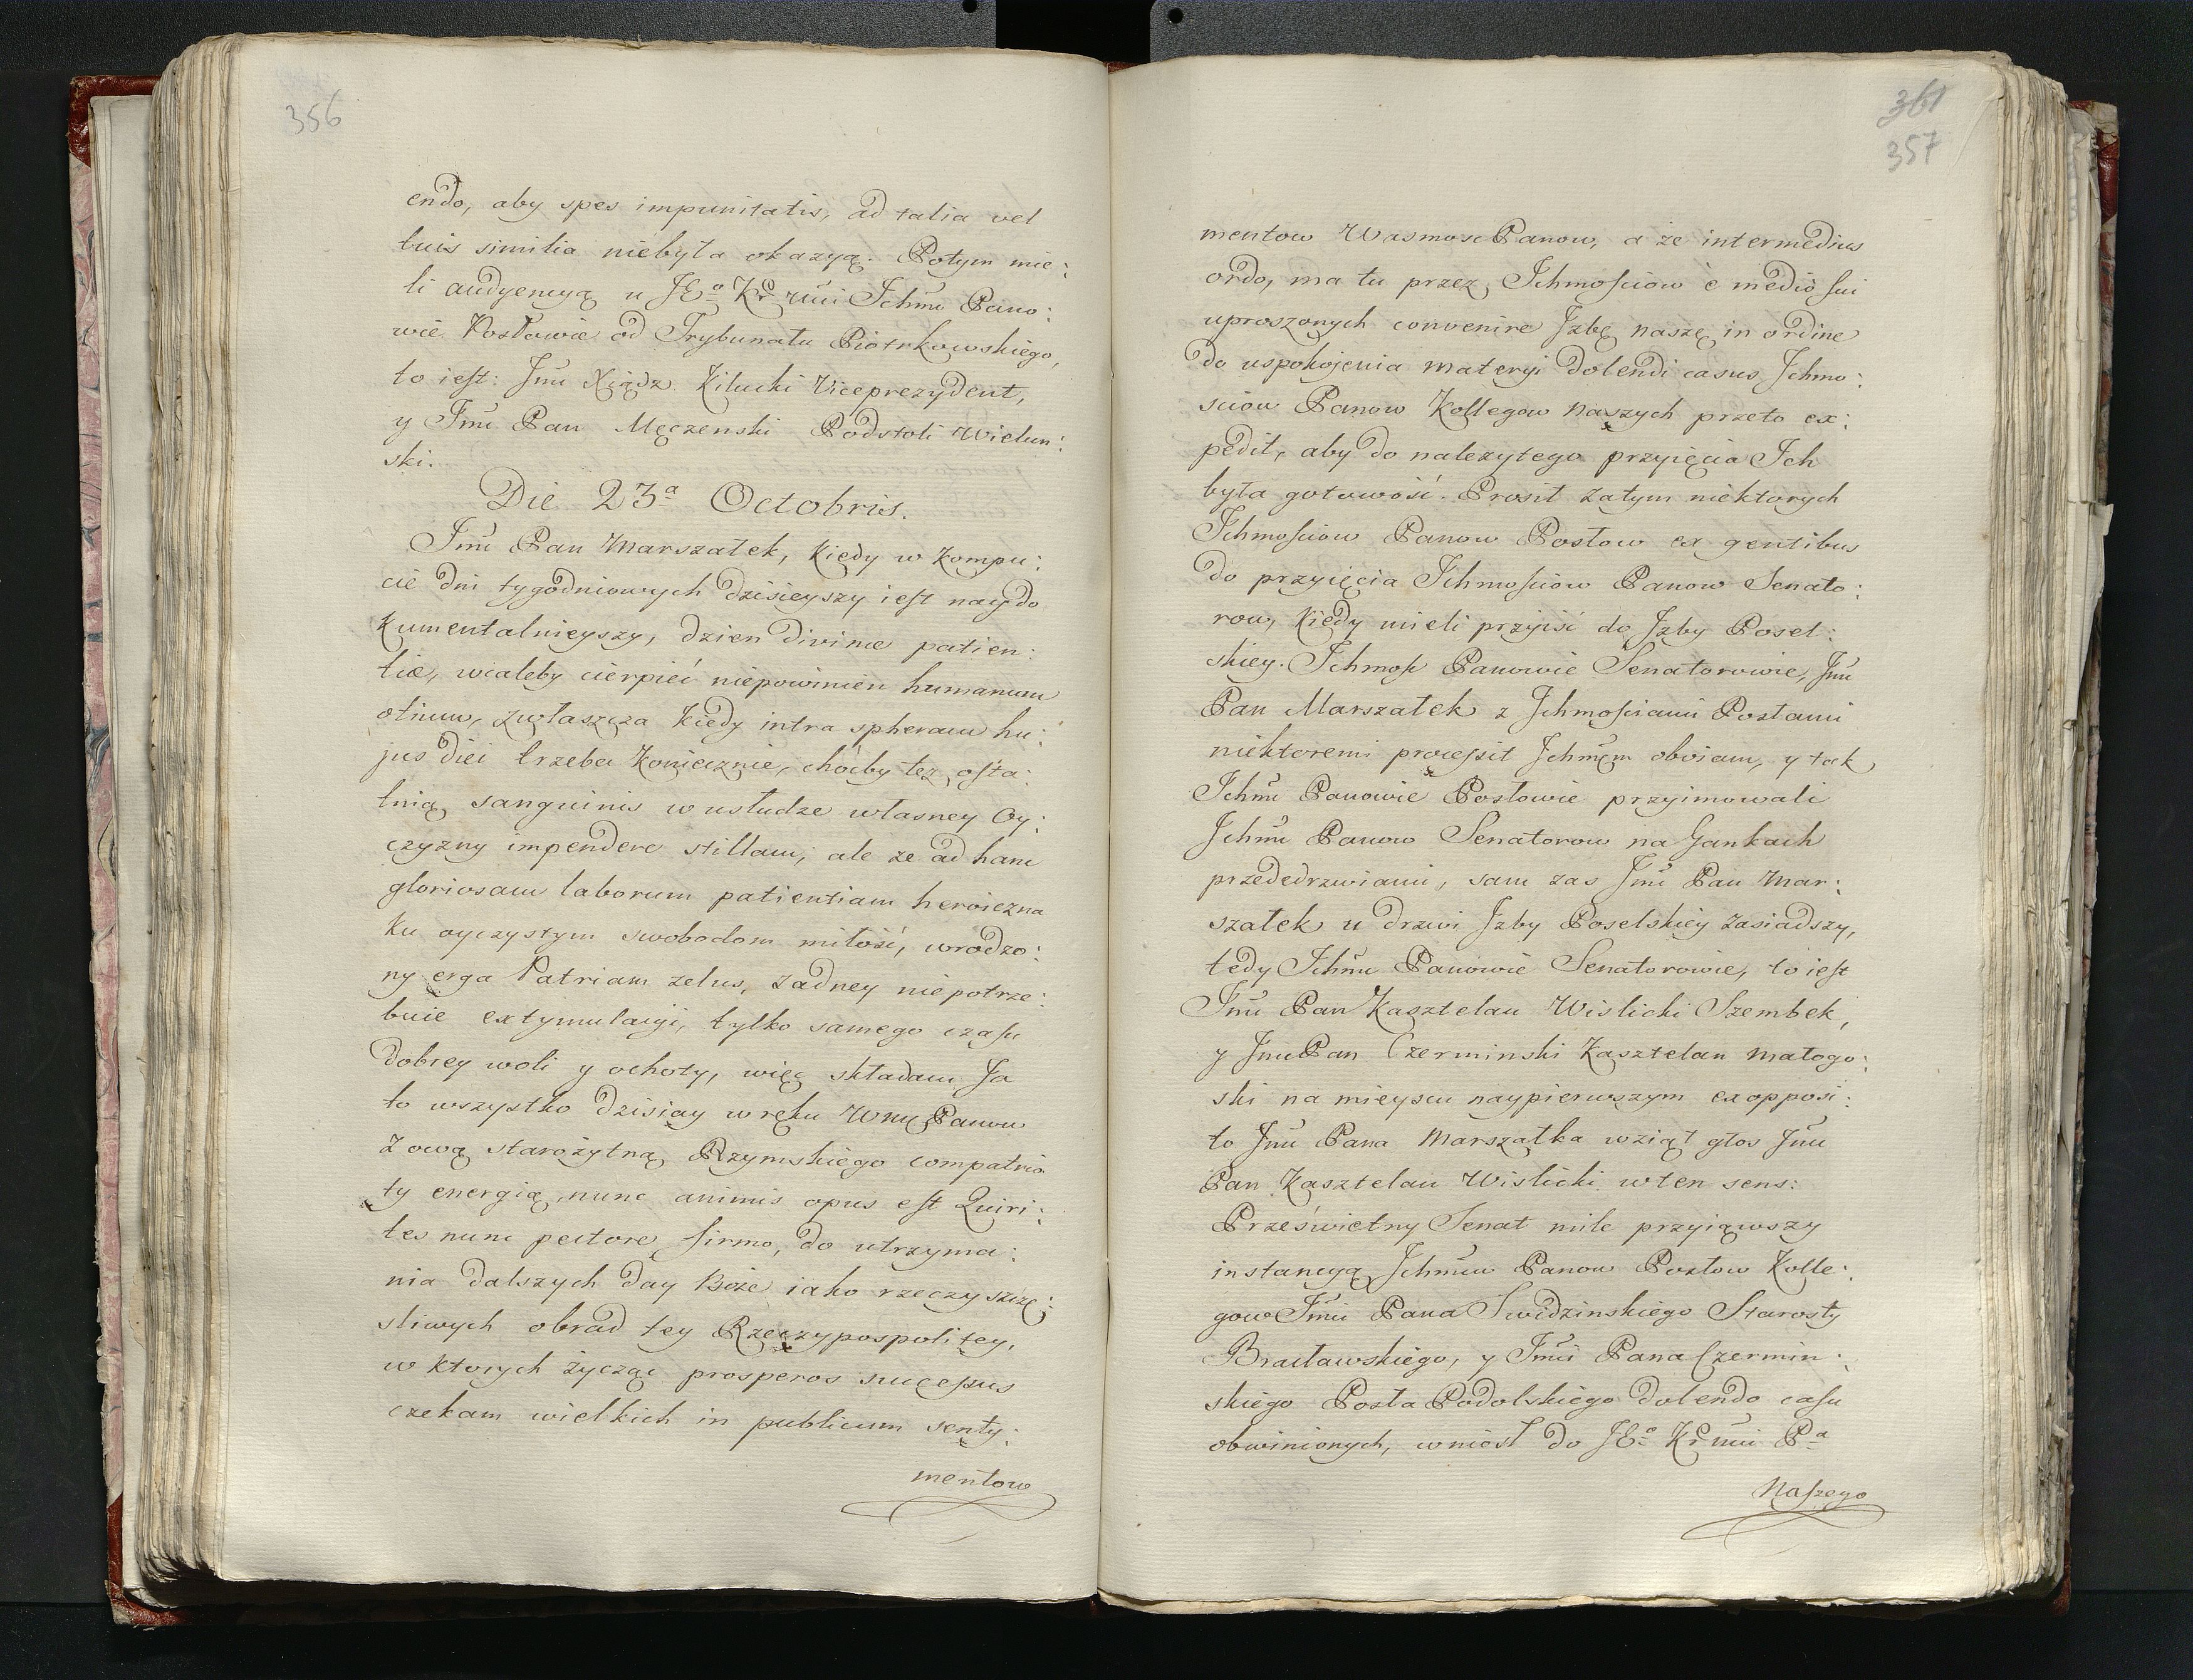 356
endo, aby spes impunitatis, ad talia vel
tuis similia niebyła okazyą. Potym mie:
li audyencyą u JEo Kr mći Ichmć Pano:
wie Posłowie od Trybunału Piotrkowskiego,
to iest: Jmć Xiądz Kilucki Viceprezydent,
y Jmć Pan Męczenski Podstoli Wielun:
ski.
Die 23a Octobris.
Jmć Pan Marszałek, kiedy w kompu:
cie dni tygodniowych dzisieyszy iest naydo
kumentalnieyszy, dzien divinæ patien:
tiæ, wcaleby cierpieć niepowinien humanum
otium, zwłaszcza kiedy intra spheram hu:
jus diei trzeba koniecznie, choćby tez osta:
tnią sanguinis w usłudze własney Oy:
czyzny impendere stillam; ale ze ad hanc
gloriosam laborum patientiam heroiczna
ku oyczystym swobodom miłość, wrodzo:
ny erga Patriam zelus, zadney niepotrze:
buie extymulacyi, tylko samego czasu
dobrey woli y ochoty, więc składam Ja
to wszystko dzisiay w ręku WM Panow
z ową starożytną Rzymskiego compatrio
ty energią, nunc animis opus est Quiri:
tes nunc pectore firmo, do utrzyma:
nia dalszych day Boże iako rzeczy szczę:
sliwych obrad tey Rzeczypospolitey,
w ktorych życząc prosperos successus
czekam wielkich in publicum senty:
mentow
361
357
mentow WasmoscPanow, a że intermedius
ordo, ma tu przez Ichmosciow è mediô sui
uproszonych convenire Jzbę naszę in ordine
do uspokojenia materyi dolendi casus Ichmo:
sciow Panow Kollegow naszych przeto ex:
pedit, aby do nalezytego przyięcia Ich
była gotowość. Prosił zatym niektorych
Ichmosciow Panow Posłow ex gentibus
do przyięcia Ichmosciow Panow Senato:
row, kiedy mieli przyiść do Jzby Posel:
skiey. Ichmosć Panowie Senatorowie, Jmć
Pan Marszałek z Ichmosciami Posłami
niektoremi processit Ichmęm obviam, y tak
Ichmć Panowie Posłowie przyimowali
Ichmć Panow Senatorow na Gankach
przededrzwiami, sam zas Jmć Pan Mar:
szałek u drzwi Jzby Poselskiey zasiadszy,
tedy Ichmć Panowie Senatorowie, to iest
Jmć Pan Kasztelan Wislicki Szembek,
y JmćPan Czerminski Kasztelan Małogo:
ski na mieyscu naypierwszym ex opposi:
to Jmć Pana Marszałka wziął głos Jmć
Pan Kasztelan Wislicki w ten sens:
Prześwietny Senat mile przyiąwszy
instancyą Ichmćw Panow Posłow Kolle:
gow Jmći Pana Swidzinskiego Starosty
Bracławskiego, y Jmći Pana Czermin:
skiego Posła Podolskiego dolendo casu
obwinionych, wniosł do JEo Kr mći Pa
Naszego